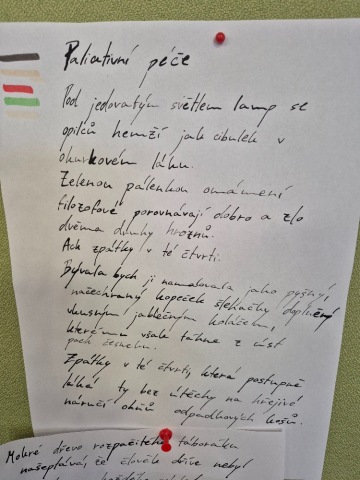 Paliativní péče
Pod jedovatým světlem lamp se
opilců hemží jak cibulek v
okurkovém láku.
Zelenou pálenkou omámení
filozofové porovnávají dobro a zlo
dvěma druhy hroznů.
Ach zpátky v té čtvrti.
Bývala bych ji namalovala jako pyšný,
načechraný kopeček šlehačky doplněný
vkusným jablečným koláčem,
kterému však táhne z úst
pach česneku.
Zpátky v té čtvrti, která postupně
láká ty bez útěchy na hřejivé
náručí ohňů odpadkových košů.
Mokré dřevo rozpačitého táboráku
našeptává, že člověk dříve nebyl